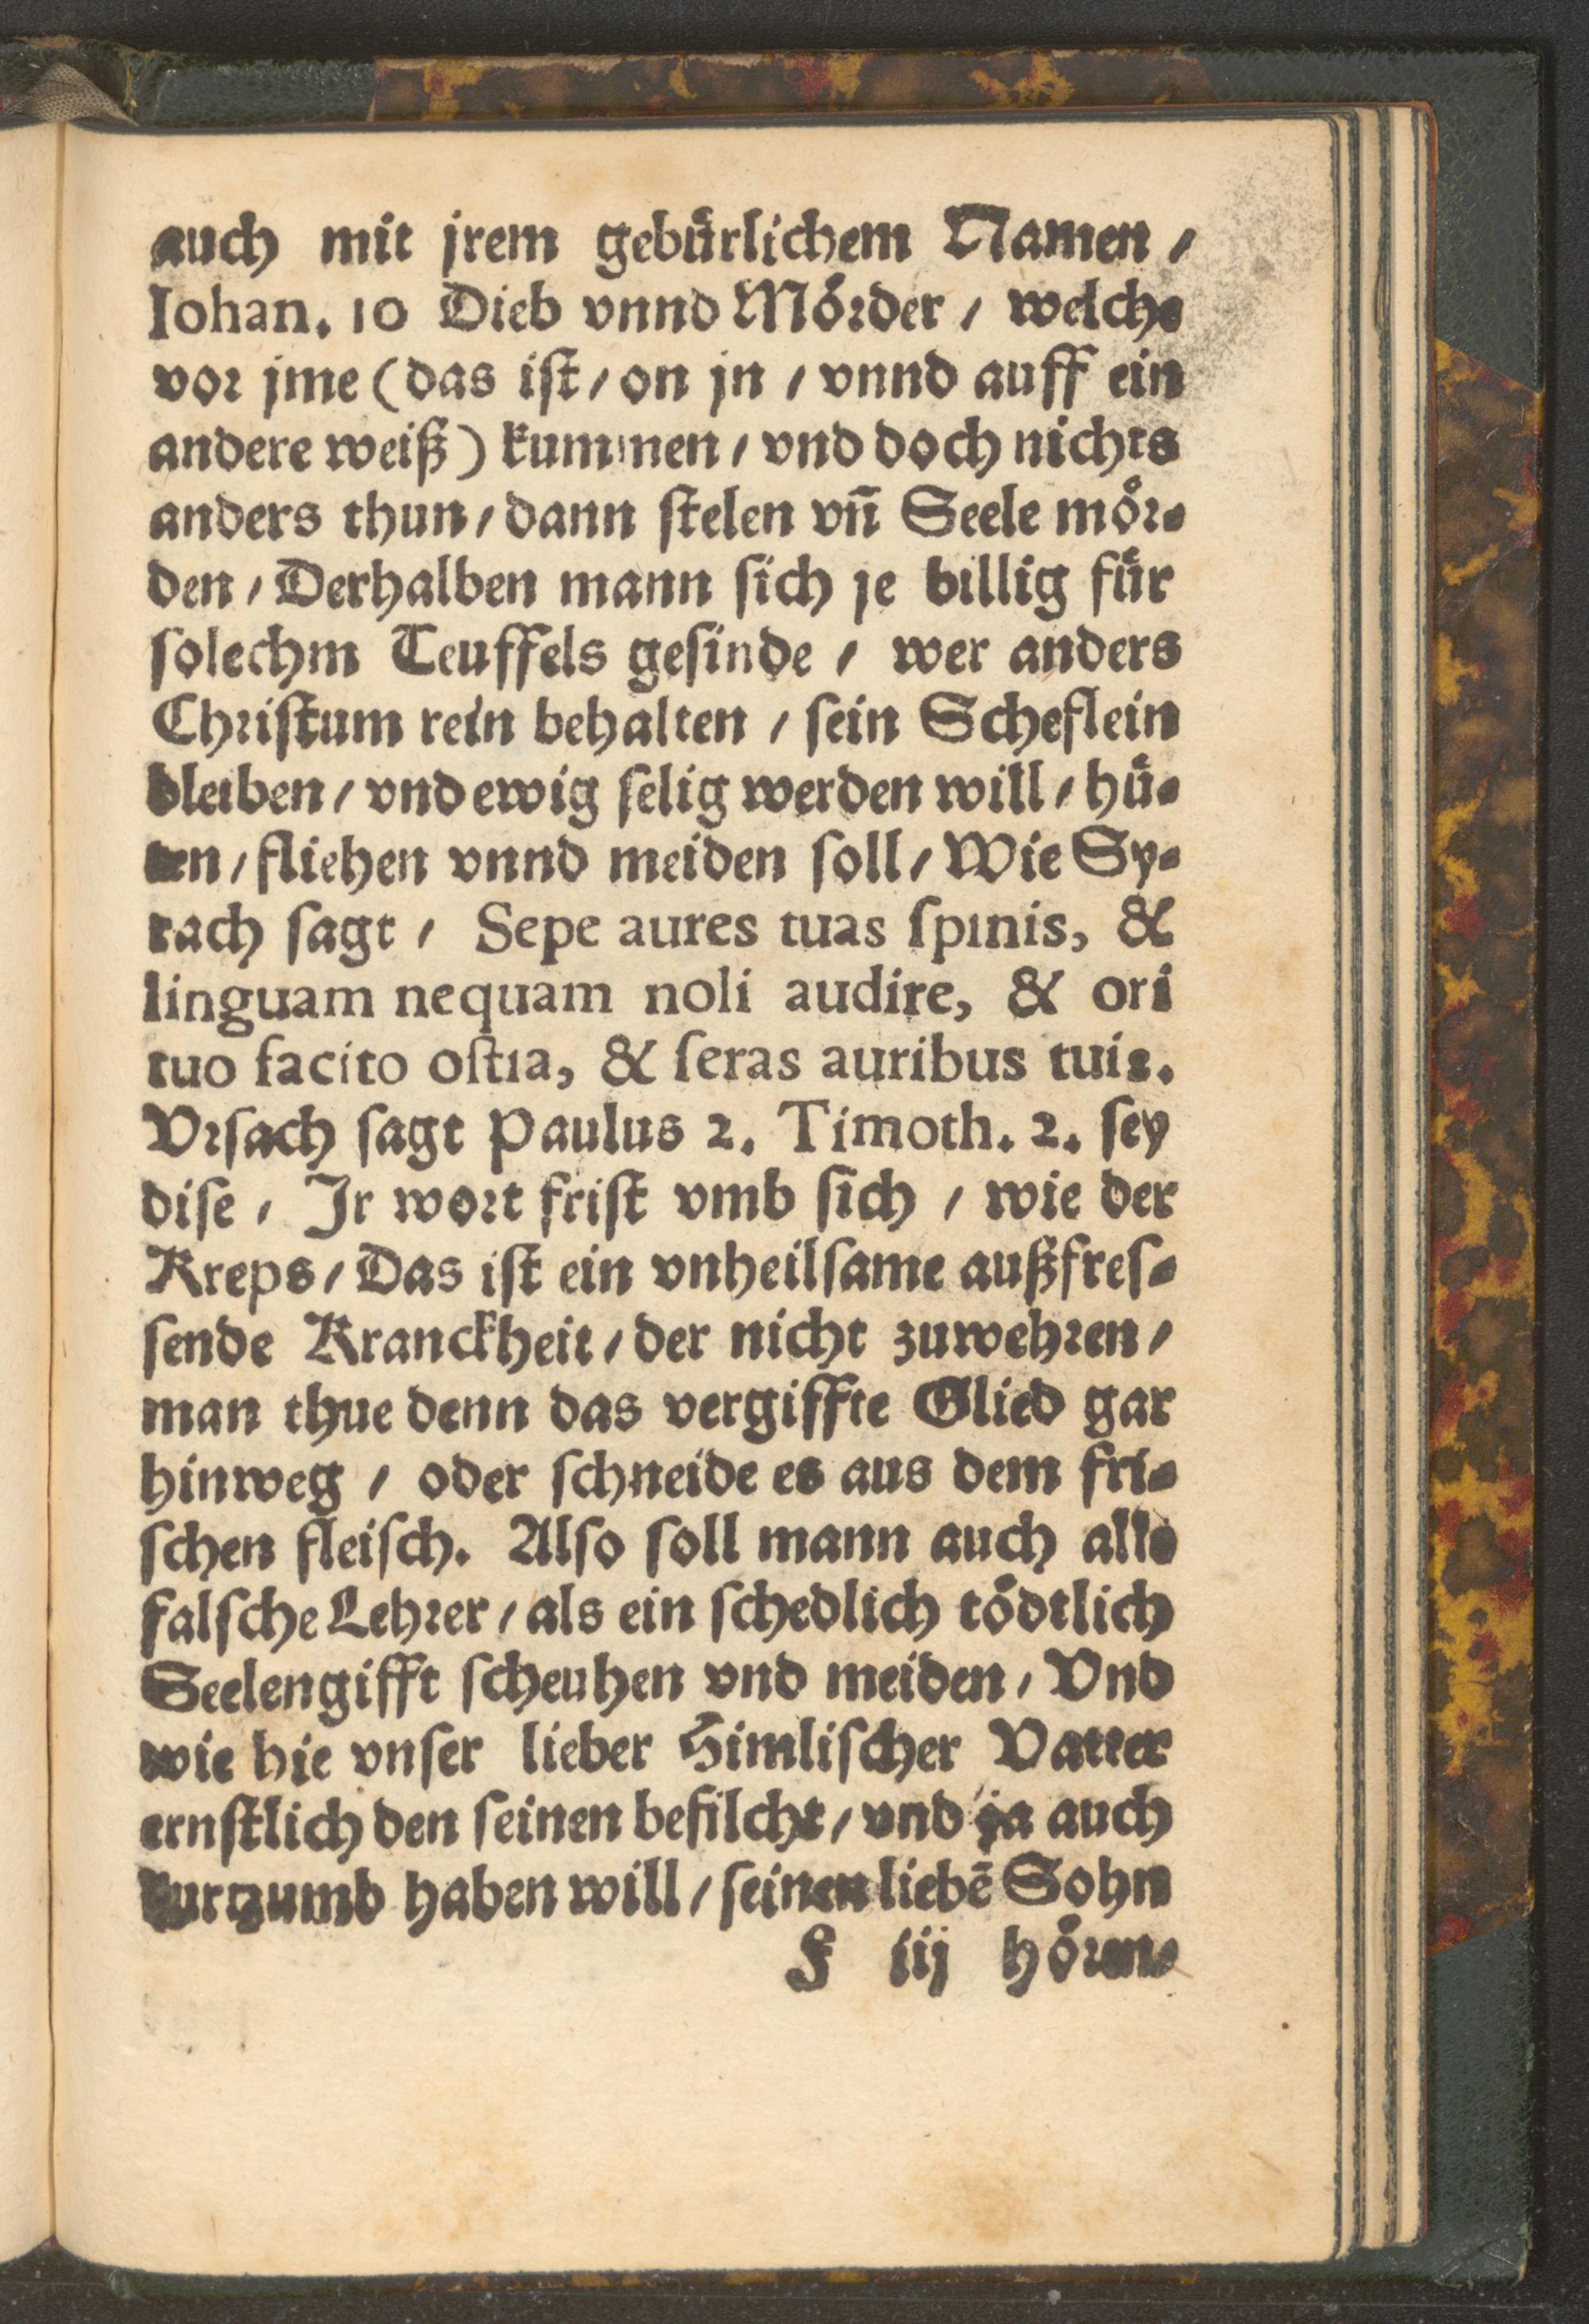 auch mit jrem gebuͤrlichem Namen /
Iohan. 10 Dieb vnnd Moͤrder / welche
vor jme (das iſt / on jn / vnnd auff ein
andere weiß) kummen / vnd doch nichts
anders thun / dann ſtelen vñ Seele moͤr⸗
den / Derhalben mann ſich je billig fuͤr
ſolechm Teuffels geſinde / wer anders
Chriſtum rein behalten / ſein Scheflein
bleiben / vnd ewig ſelig werden will / huͤ⸗
ten / fliehen vnnd meiden ſoll / Wie Sy⸗
rach ſagt / Sepe aures tuas ſpinis, &
linguam nequam noli audire, & ori
tuo facito oſtia, & ſeras auribus tuis.
Vrſach ſagt Paulus 2. Timoth. 2. ſey
diſe / Jr wort friſt vmb ſich / wie der
Kreps / Das iſt ein vnheilſame außfreſ⸗
ſende Kranckheit / der nicht zuwehren /
man thue denn das vergiffte Glied gar
hinweg / oder ſchneide es aus dem fri⸗
ſchen fleiſch. Alſo ſoll mann auch alle
falſche Lehrer / als ein ſchedlich toͤdtlich
Seelengifft ſcheuhen vnd meiden / Vnd
wie hie vnſer lieber Himliſcher Vatter
ernſtlich den ſeinen befilcht / vnd ja auch
kurtzumb haben will / ſeinen liebē Sohn
F iij hoͤren⸗